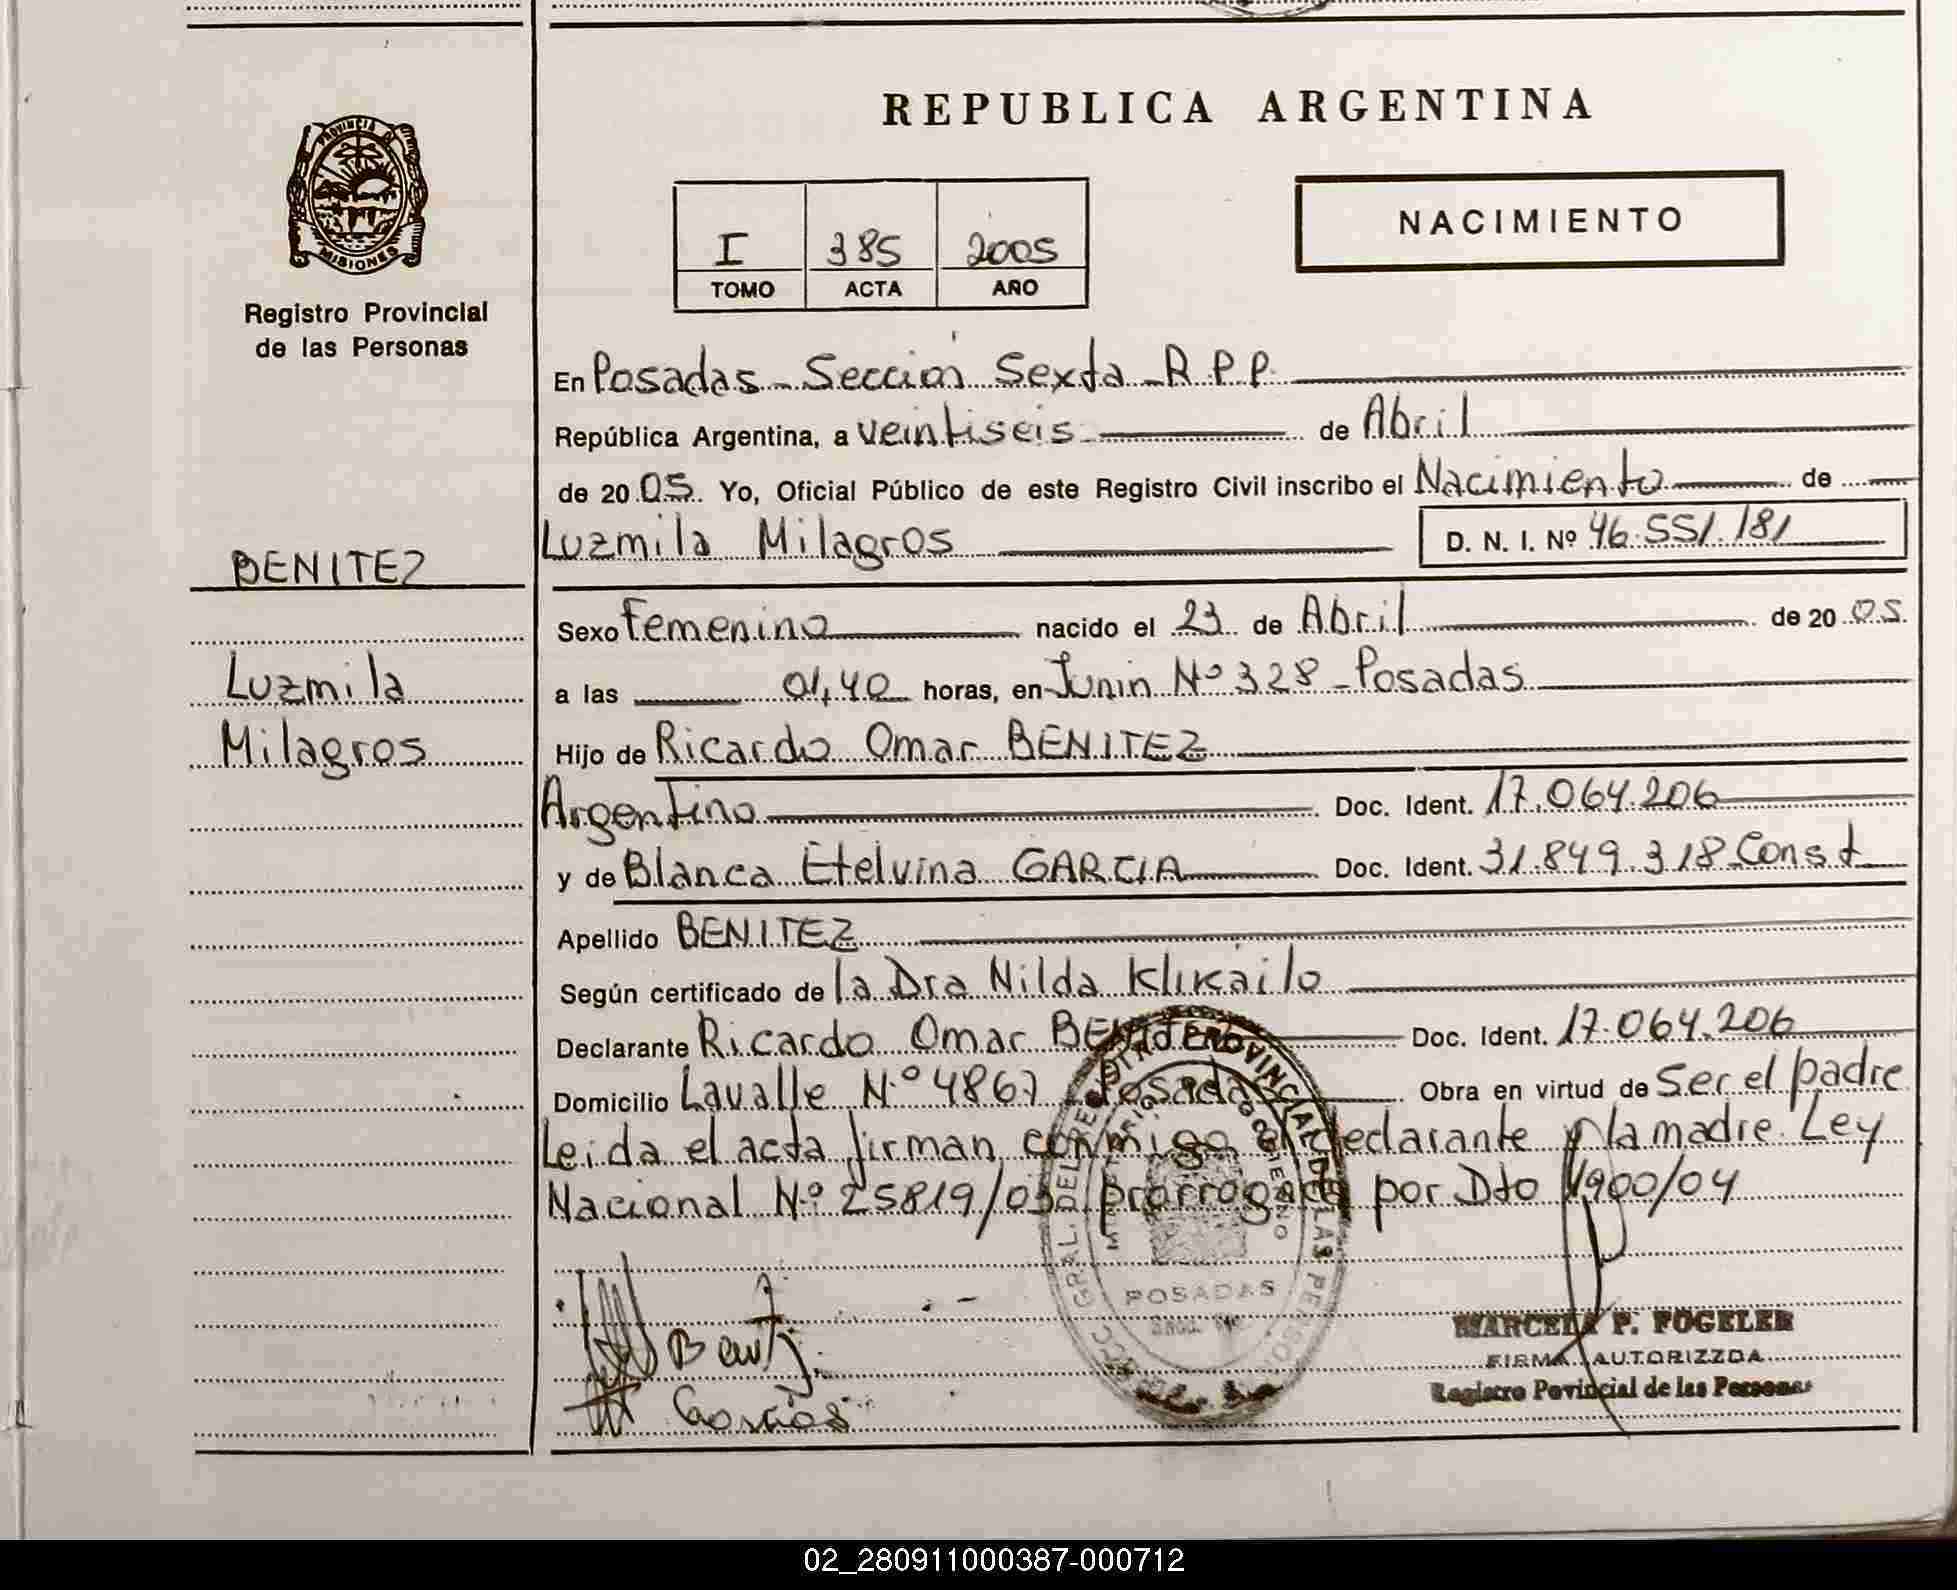 REPUBLICA ARGENTINA
PROVINCIA DE
MISIONES
Registro Provincial
de las Personas
I 385 2005
TOMO ACTA AÑO
NACIMIENTO
En Posadas - Sección Sexta - R.P.P.
República Argentina, a veintiseis de Abril
de 20 05. Yo, Oficial Público de este Registro Civil inscribo el Nacimiento de
Luzmila Milagros D. N. I. Nº 46.551.181
BENITEZ
Sexo Femenino nacido el 23 de Abril de 20 05.
Luzmila
a las 01,40 horas, en Junin Nº 328 - Posadas
Milagros
Hijo de Ricardo Omar BENITEZ
Argentino Doc. Ident. 17.064.206
y de Blanca Etelvina GARCIA Doc. Ident. 31.849.318 Const
Apellido BENITEZ
Según certificado de la Dra Nilda Klikailo
Declarante Ricardo Omar BENITEZ Doc. Ident. 17.064.206
Domicilio Lavalle N.º 4867 - Posadas Obra en virtud de Ser el padre
Leida el acta firman conmigo el declarante y la madre. Ley
Nacional N.º 25819/03 prorrogada por Dto 1900/04
POSADAS
MARCELA P. FOGELER
FIRMA AUTORIZZDA
Registro Povincial de las Personas
02_280911000387-000712